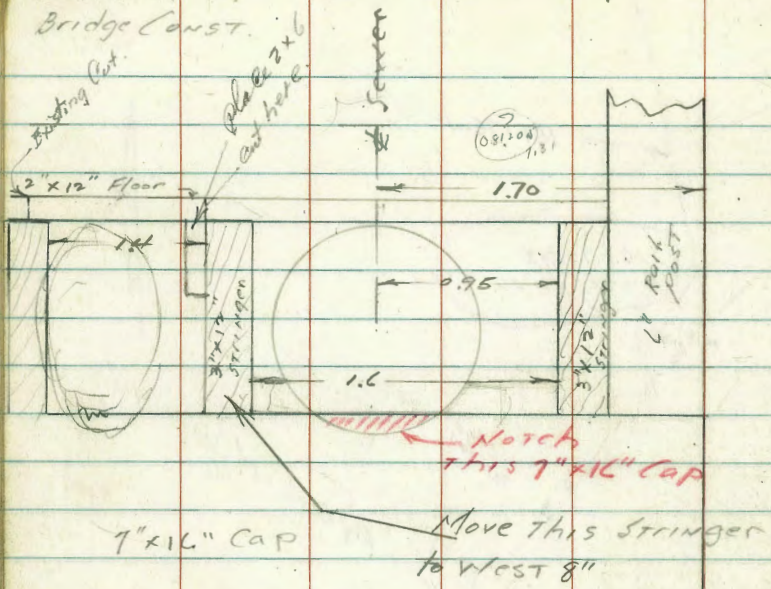 Bridge Const.
Existing Cut.
Place 2x6
Cut here
Sewer
?
1.31
2"x12" Floor
1.70
1.4
0.95
3"x12"
Stringer
6" Rail
Post
3"x12"
Stringer
1.6
Notch
This 7"x16" Cap
7"x16" Cap
Move This Stringer
to West 8"